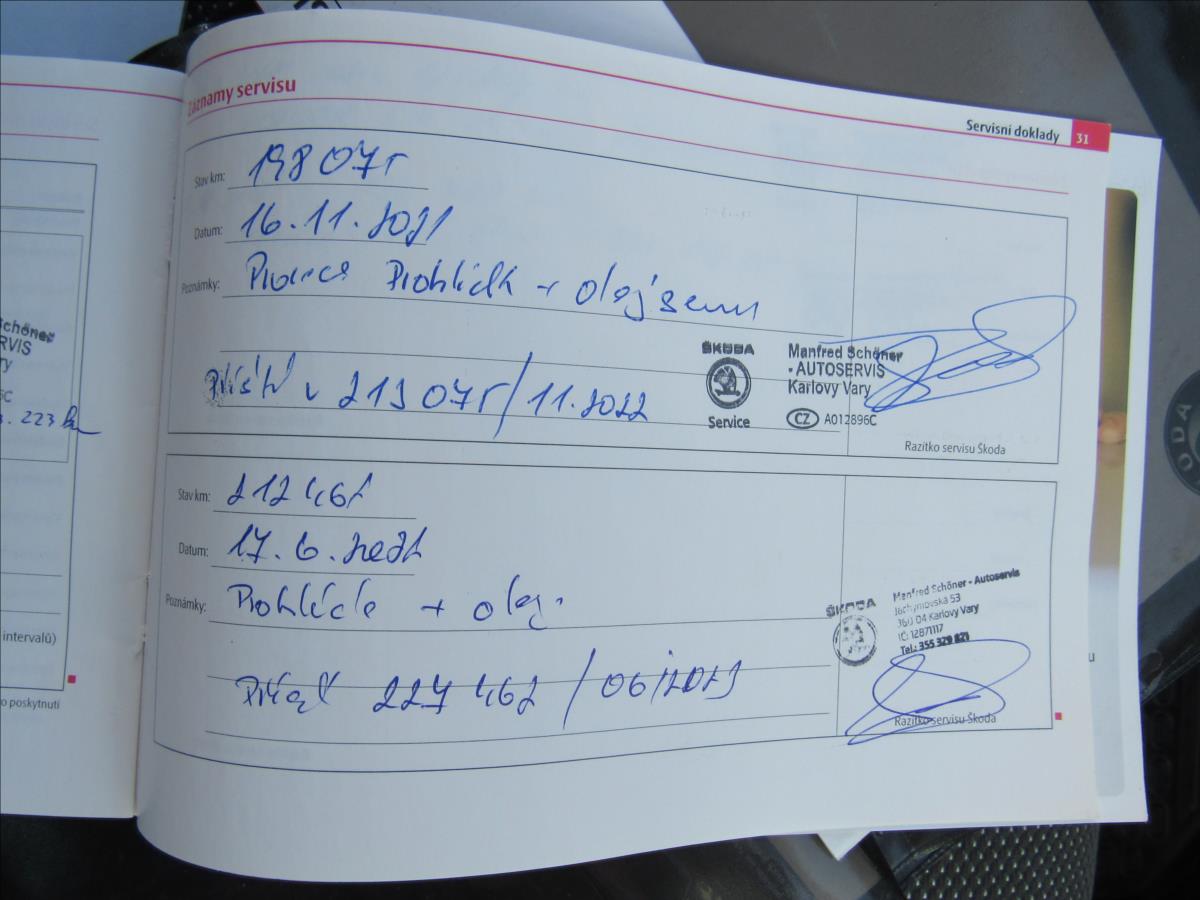 Záznamy servisu
Servisní doklady 31
Stav km: 198 075
Datum: 16.11.2021
Poznámky: Prohlídk + olej
213 075/11.2022
ŠKODA
Service
Manfred Schöner
• AUTOSERVIS
Karlovy Vary
CZ A012896C
Razítko servisu Škoda
Stav km: 212 462
Datum: 17.6.2022
Poznámky: Prohlídk + olej
227 462 /06/2023
ŠKODA
Manfred Schöner - Autoservis
Jáchymovská 53
360 04 Karlovy Vary
IČ: 12871117
Tel.: 355 329 821
Razítko servisu Škoda
Schöner
intervalů)
o poskytnutí